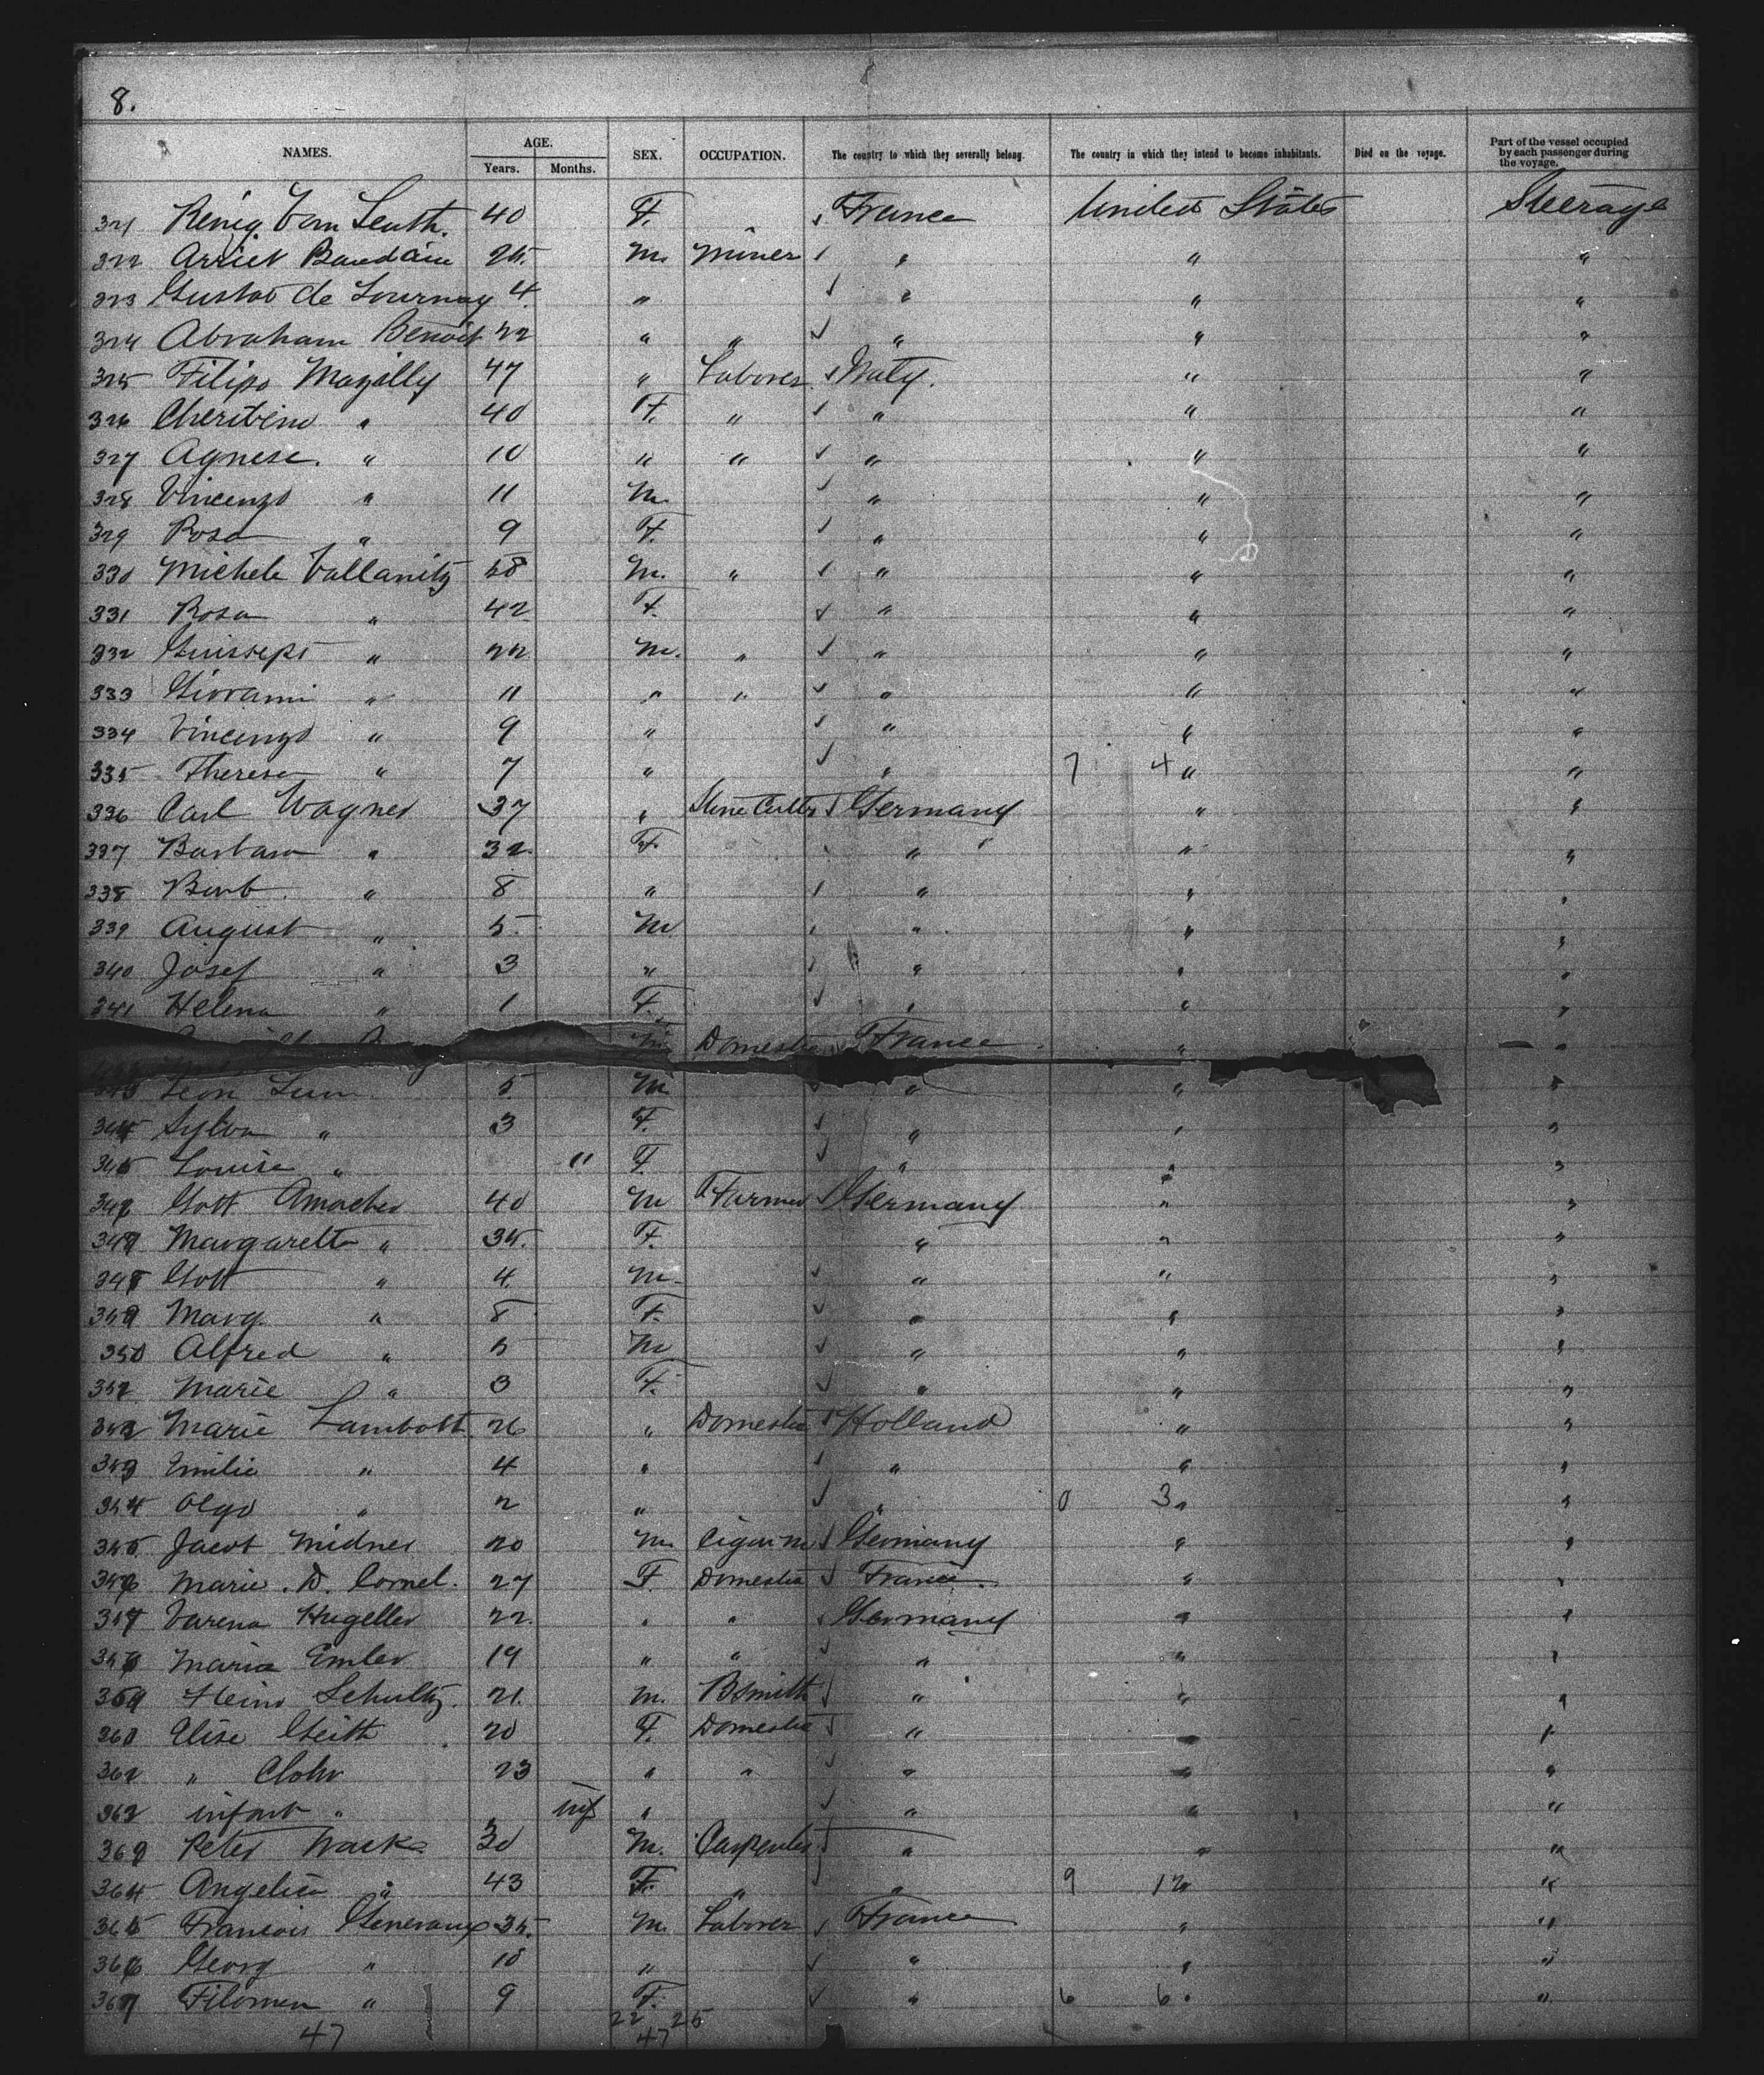 8.
NAMES. AGE. Years. Months. SEX. OCCUPATION. The country to which they severally belong. The country in which they intend to become inhabitants. Died on the voyage. Part of the vessel occupied by each passenger during the voyage.
321 Van Leuth. 40 F. France United States Steerage
322 Baudain 25. M. Miner " " "
323 Gustav de Tournay 4. " " " "
324 Abraham Benoit 22 " " " " "
325 Filipo Mazilly 47 " Laborer Italy. " "
326 Cheribino " 40 F. " " " "
327 Agnese. " 10 " " " " "
328 Vincenzo " 11 M. " " "
329 Rosa " 9 F. " " "
330 Michele Vallanity 58 M. " " " "
331 Rosa " 42 F. " " "
332 Guissepi " 22 M. " " " "
333 Giovanni " 11 " " " " "
334 Vincenzo " 9 " " " "
335 Theresa " 7 " " 7 4 " "
336 Carl Wagner 37 " Stone Cutter Germany " "
337 Barbara " 32. F. " " "
338 Barb. " 8 " " " "
339 August " 5. M " " "
340 Josef " 3 " " " "
341 Helena " 1 F. " " "
Domestic France " "
Leon 5. M " " "
344 Sylva " 3 F. " " "
345 Louise " " F. " " "
346 Gott Amacher 40 M Farmer Germany " "
347 Margareth " 35. F. " " "
348 Gott " 4. M. " " "
349 Marg. " 8 F. " " "
350 Alfred " 5 M " " "
351 Marie " 3 F. " " "
352 Marie Lambott 26 " Domestic Holland " "
353 Emilie " 4 " " " "
354 Olga " 2 " " 0 3 " "
355 Jacob Midner 20 M. Cigar m Germany " "
356 Marie. D. Cornel. 27 F. Domestic France " "
357 Varena Hugeller 22. " " Germany " "
358 Maria Emler 19 " " " " "
359 Heinr Schultz. 21. M. Bsmith " " "
360 Elise Geith 20 F. Domestic " " "
361 " Clohr 23 " " " " "
362 infant " inf " " " "
363 Peter Wack 30 M. Carpenter " " "
364 Angelica " 43 F. " " 9 12 " "
365 Francois Generaux 35. M. Laborer France " "
366 Georg " 10 " " " "
367 Filomen " 9 F. " 6 6 " "
47 22 25
47